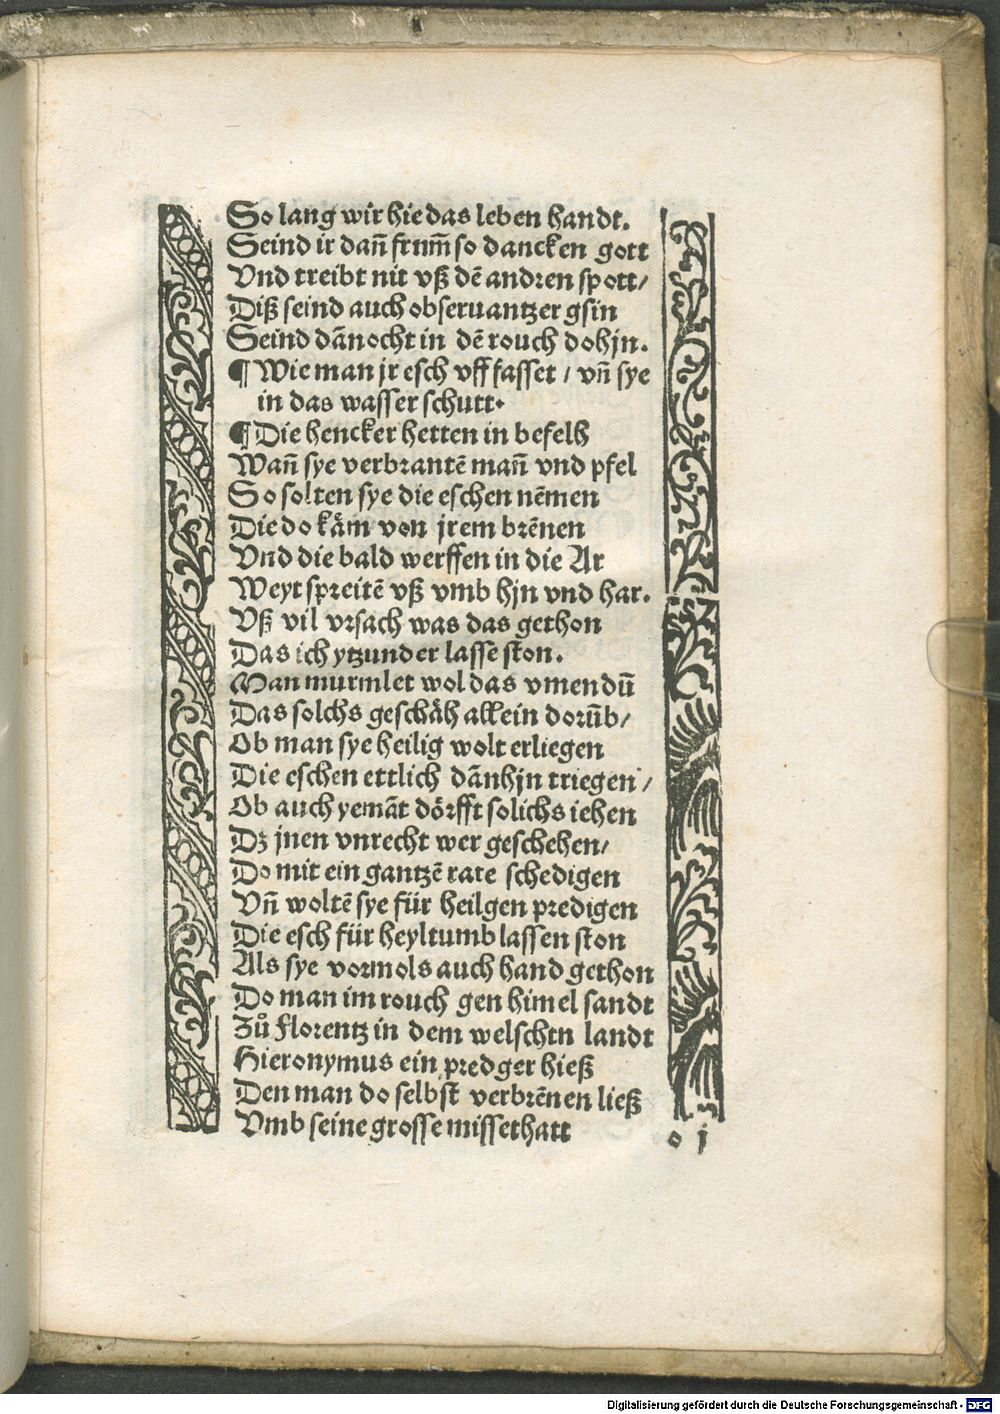 So lang wir hie das leben handt.
Seind ir dañ frum̃ so dancken gott
Vnd treibt nit vß dē andren spott/
Diß seind auch obseruantzer gsin
Seind dānocht in dē rouch dohjn.
¶ Wie man jr esch vff fasset / vñ sye
in das wasser schutt.
¶ Die hencker hetten in befelh
Wañ sye verbrantē mañ vnd pfel
So solten sye die eschen nēmen
Die do käm von jrem brēnen
Vnd die bald werffen in die Ar
Weyt spreitē vß vmb hjn vnd har.
Vß vil vrsach was das gethon
Das ich ytzunder lasse ston.
Man murmlet wol das vmendū
Das solchs geschäh allein dorūb/
Ob man sye heilig wolt erliegen
Die eschen ettlich dānhjn triegen/
Ob auch yemāt dörfft solichs iehen
Dz jnen vnrecht wer geschehen/
Do mit ein gantzē rate schedigen
Vñ woltē sye für heilgen predigen
Die esch für heyltumb lassen ston
Als sye vormols auch hand gethon
Do man im rouch gen himel sandt
Zů Florentz in dem welschtn landt
Hieronymus ein predger hieß
Den man do selbst verbrēnen ließ
Vmb seine grosse missethatt
o j
Digitalisierung gefördert durch die Deutsche Forschungsgemeinschaft - DFG